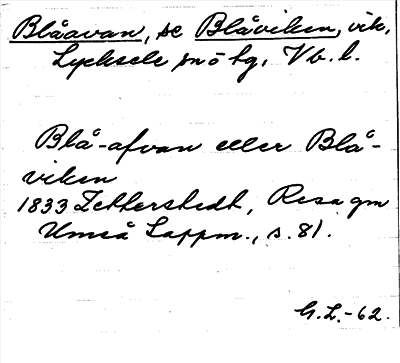 Blåavan, se Blåviken, vik,
Lycksele snö hg, Vb. l.
Blå-afvan eller Blå-
viken
1833 Zetterstedt, Resa gm
Umeå Lappm., s. 81.
G.L.-62.